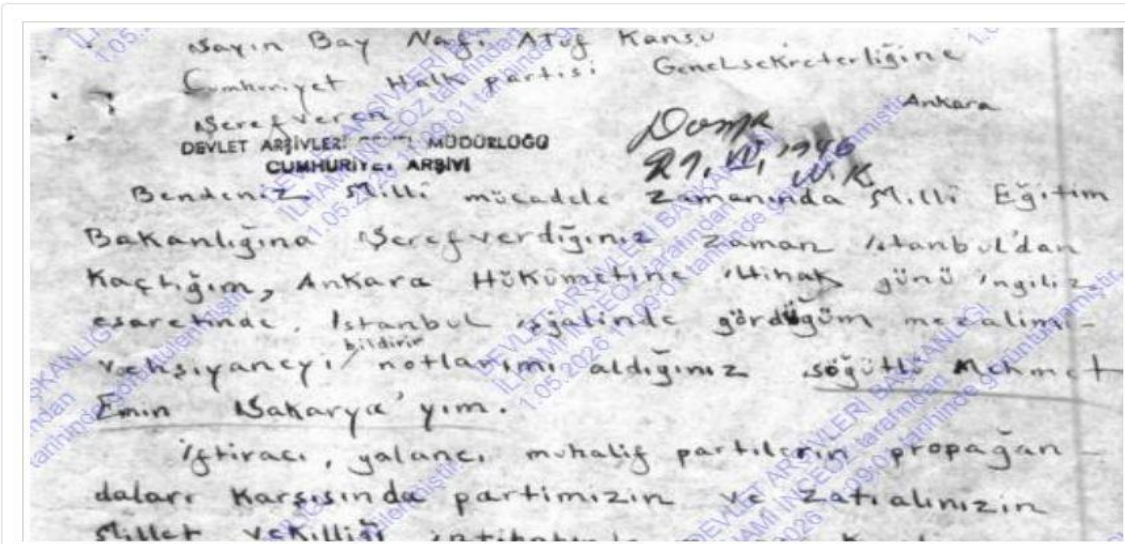 Sayın Bay Nafi Atuf Kansu
Cumhuriyet Halk partisi Genelsekreterliğine
Ankara
Şerefveren
DEVLET ARŞİVLERİ GENEL MÜDÜRLÜĞÜ
CUMHURİYET ARŞİVİ
29. VII. 1946
N.K.
Bendeniz Milli mücadele zamanında Milli Eğitim
Bakanlığına Şerefverdiğiniz zaman istanbul'dan
Kaçtığım, Ankara Hükûmetine iltihak günü ingiliz
esaretinde, İstanbul işğalinde gördüğüm mezalimi-
vehşiyaneyi bildirir notlarımı aldığınız söğütlü Mehmet
Emin Sakarya'yım.
iftiracı, yalancı muhalif partilerin propağan-
daları Karşısında partimizin ve Zatıalinizin
Millet Vekilliği intihabında